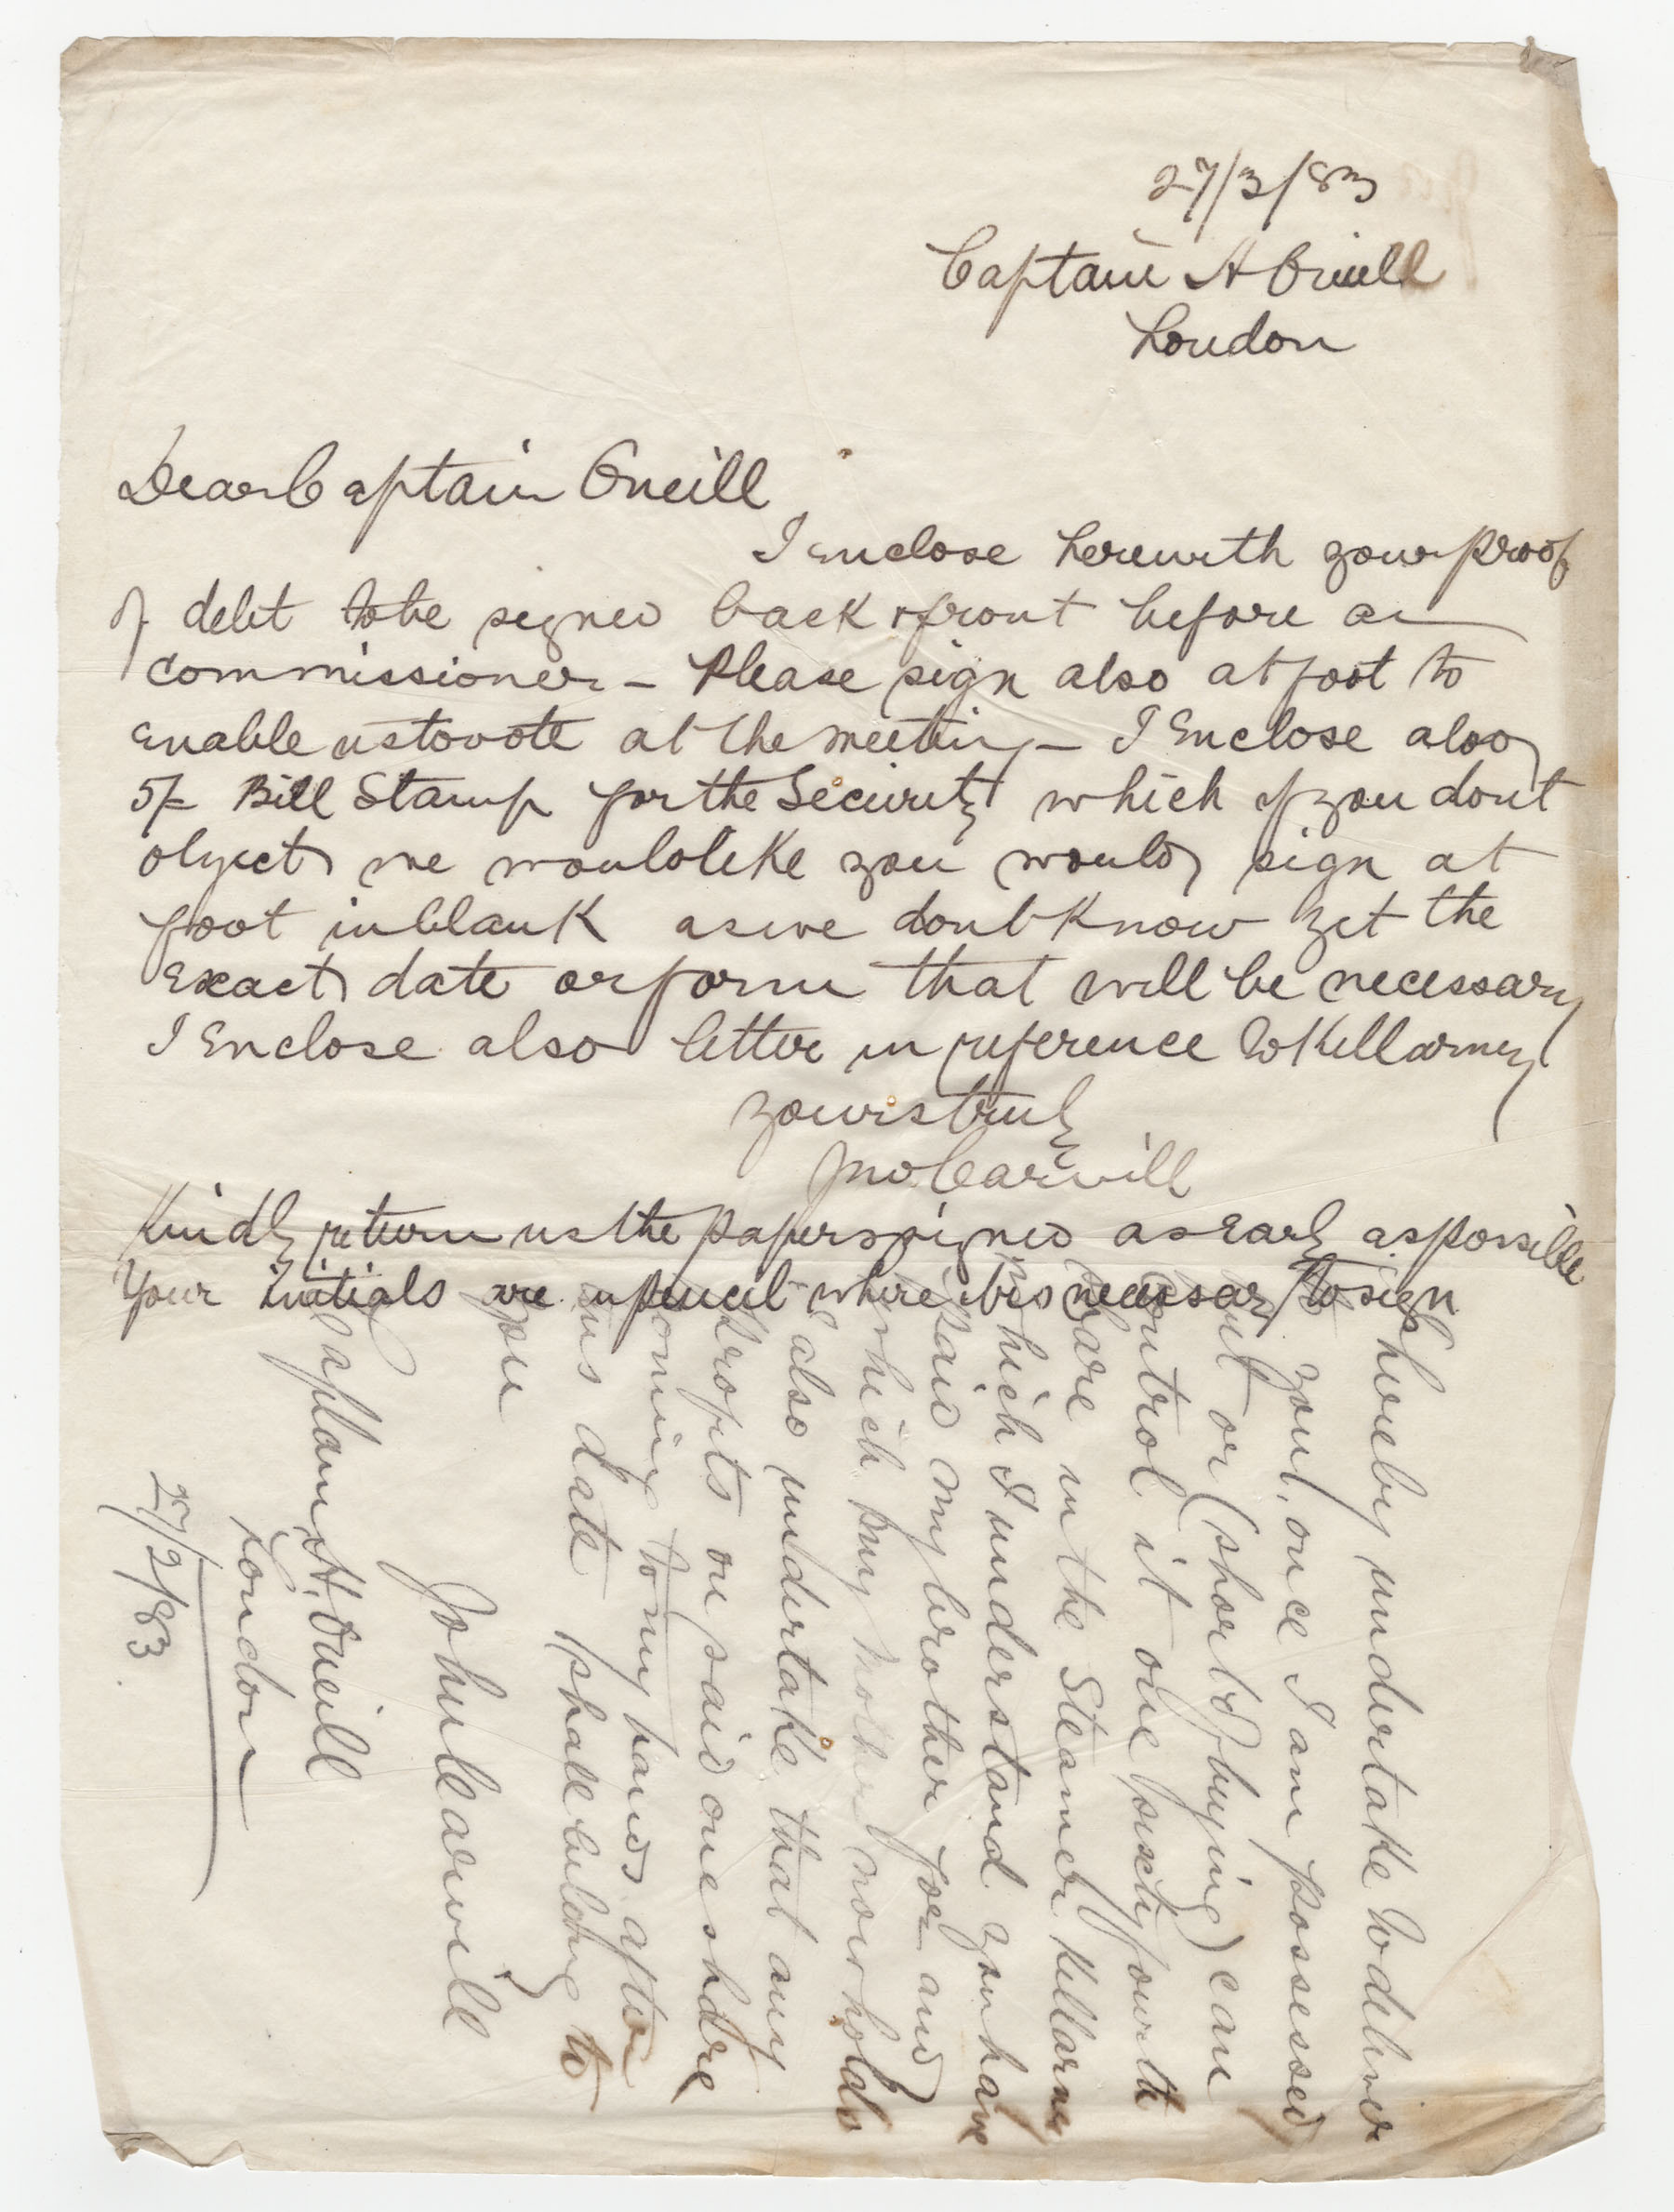 27/3/83
Captain A Oneill
London
Dear Captain Oneill
I enclose herewith your proof
of debt to be signed back & front before a
commissioner – Please sign also at foot to
enable us to vote at the meeting – I Enclose also
5/- Bill Stamp for the Security which if you dont
object we would like you would sign at
foot in blank as we dont know yet the
exact date or form that will be necessary
I Enclose also letter in reference to Killarney
yours truly
Jno Carvill
Kindly return us the papers signed as early as possible
Your initials are in pencil where its necessary to sign
I hereby undertake to deliver
to you, once I am possessed
but or (short of buying) can
control it one sixty fourth
share in the Steamer Killarney
which I understand you have
paid my brother for and
which my Mother now holds
I also undertake that any
profits on said one share
coming to my hands after
this date shall belong to
you
John Carvill
Captain A. Oneill
London
27/2/83